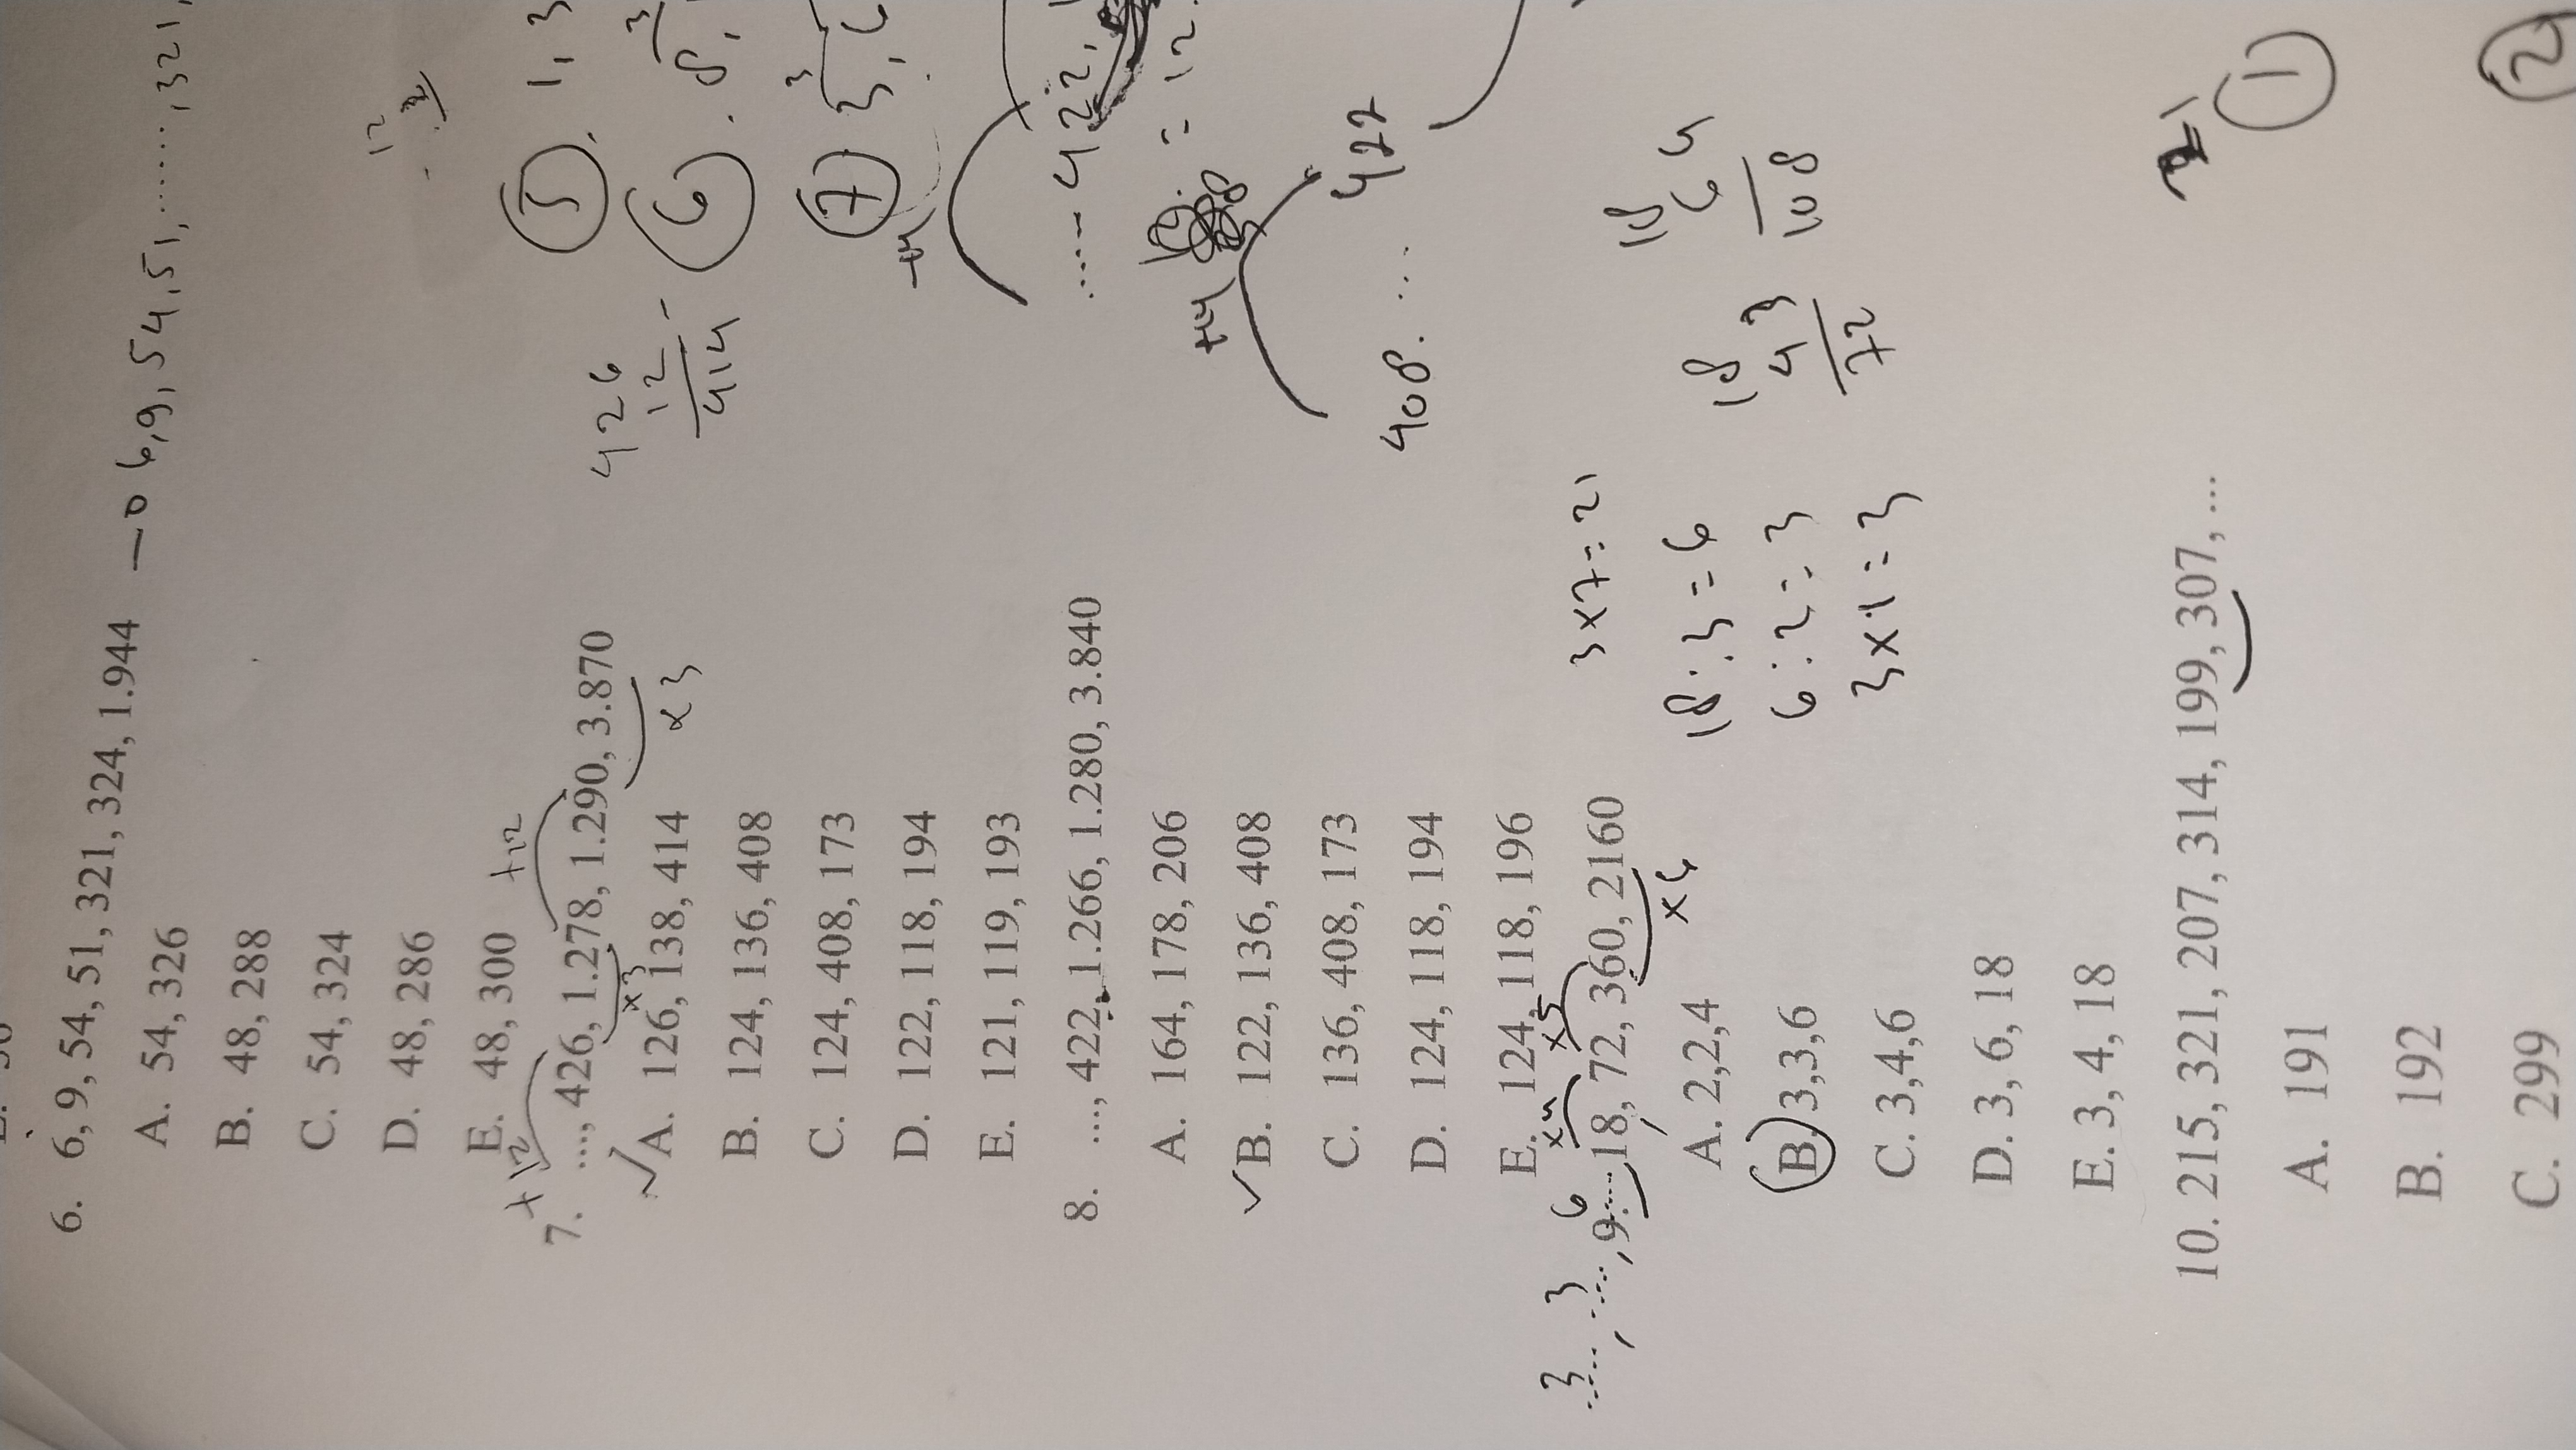 6. 6, 9, 54, 51, 321, 324, 1.944 → 6, 9, 54, 51, ........, 321,
A. 54, 326
B. 48, 288
C. 54, 324
D. 48, 286
E. 48, 300
+12 +12
7. ...., 426, 1.278, 1.290, 3.870
×3 ×3
A. 126, 138, 414
B. 124, 136, 408
C. 124, 408, 173
D. 122, 118, 194
E. 121, 119, 193
8. ...., 422, 1.266, 1.280, 3.840
A. 164, 178, 206
B. 122, 136, 408
C. 136, 408, 173
D. 124, 118, 194
E. 124, 118, 196
3 3 6 ×4 ×5
....., ....., 9.....18, 72, 360, 2160
×6
A. 2,2,4
B. 3,3,6
C. 3,4,6
D. 3, 6, 18
E. 3, 4, 18
10. 215, 321, 207, 314, 199, 307, ...
A. 191
B. 192
C. 299
12
5. 1, 3
6. 8,
7. 3, 6
426
12 -
414
..... 422,
= 12
+14
408. ... 422
3 x 7 = 21
18 : 3 = 6
6 : 2 = 3
3 x 1 = 3
18
4
72
18
6
108
1
2